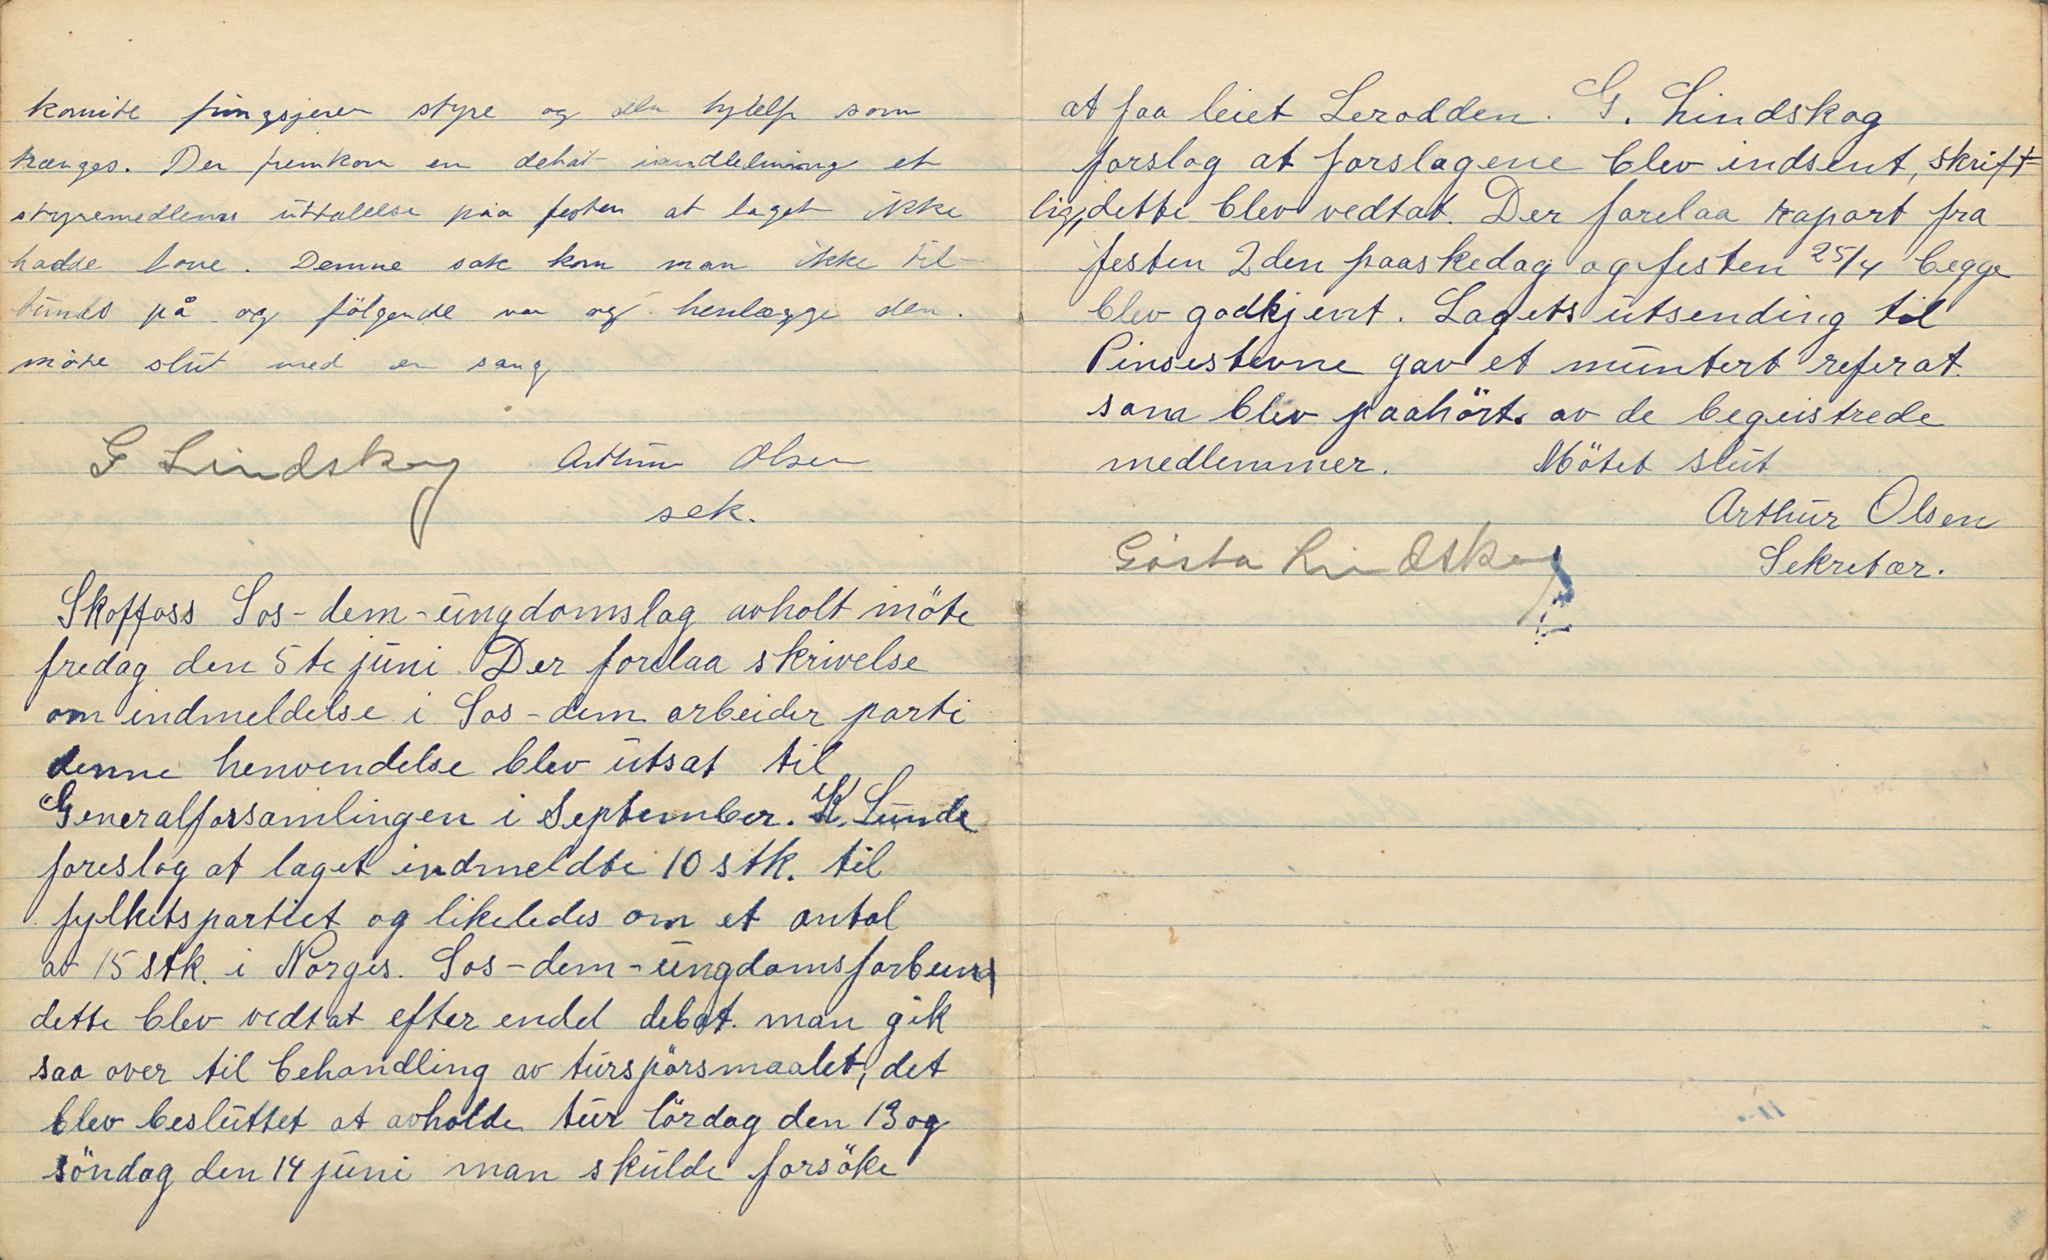 komite fungsjerer styre og den hjelp som
trænges. Der fremkom en debat et
styremedlems uttalelse paa festen at laget ikke
hadde love. Denne sak kom man ikke til-
bunds på og følgende var og henlægge den.
møte slut med en sang
G Lindskog Arthur Olsen
sek.
Skotfoss Sos-dem-ungdomslag avholt möte
fredag den 5te juni. Der forelaa skrivelse
om indmeldelse i Sos-dem arbeider parti
denne henvendelse blev utsat til
Generalforsamlingen i September. K. Lunde
foreslog at laget indmeldte 10 stk. til
fylketspartiet og likeledes om et antal
av 15 stk. i Norges. Sos-dem-ungdomsforbund
dette blev vedtat efter endel debat. man gik
saa over til behandling av turspörsmaalet, det
blev besluttet at avholde tur lördag den 13 og
söndag den 14 juni man skulde forsöke
at faa leiet Lerodden. G. Lindskog
forslog at forslagene blev indsent, skrift-
lig, dette blev vedtat. Der forelaa raport fra
festen 2den paaskedag og festen 25/4 begge
blev godkjent. Lagets utsending til
Pinsestevne gav et muntert referat.
som blev paahört. av de begeistrede
medlemmer. Mötet slut
Arthur Olsen
Gösta Lindskog Sekretær.